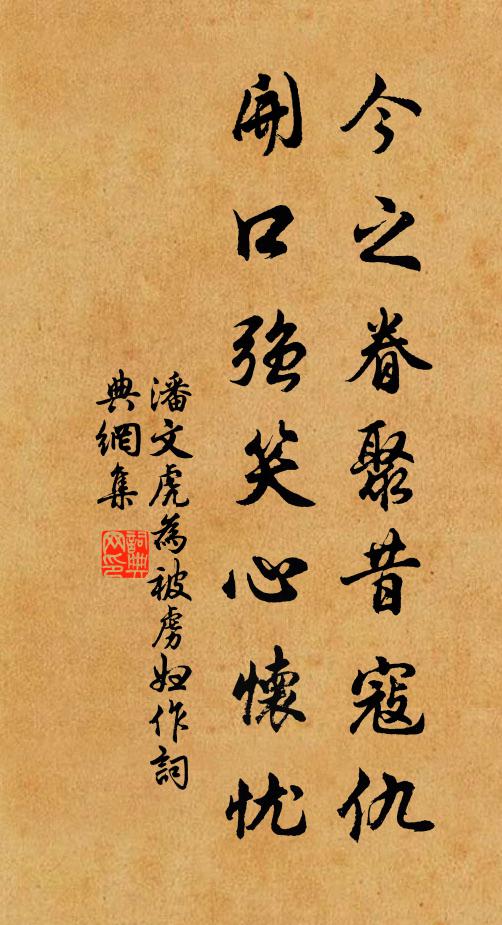 今之眷聚昔寇仇
開口强笑心懷忧
潘文虎為被虜妇作詞
典網集
詞典网印